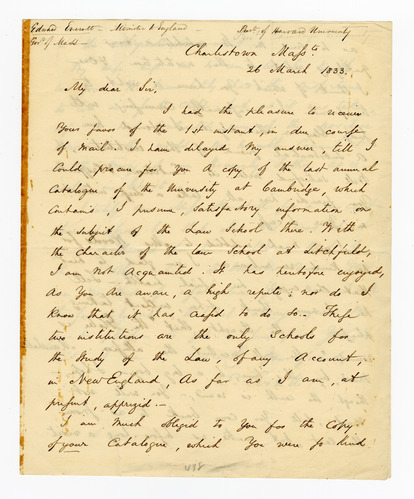 Edward Everett – Minister to England – Pres.t of Harvard University
Gov.r of Mass.
Charlestown Mass.ts
26 March 1833.
My dear Sir,
I had the pleasure to receive
Your favor of the 1st instant, in due course
of mail. I have delayed My answer, till I
Could procure for You A copy of the last annual
Catalogue of the University at Cambridge, which
Contains, I presume, satisfactory information on
the subject of the Law School there. With
the character of the law School at Litchfield,
I am Not Acquainted. It has heretofore enjoyed,
As You Are aware, a high repute; nor do I
Know that it has ceased to do so.– These
two institutions are the only Schools for
the Study of the Law, of any Account,
in New England, As far as I am, at
present, apprized.–
I am much obliged to You for the Copy
of your Catalogue, which You were so kind